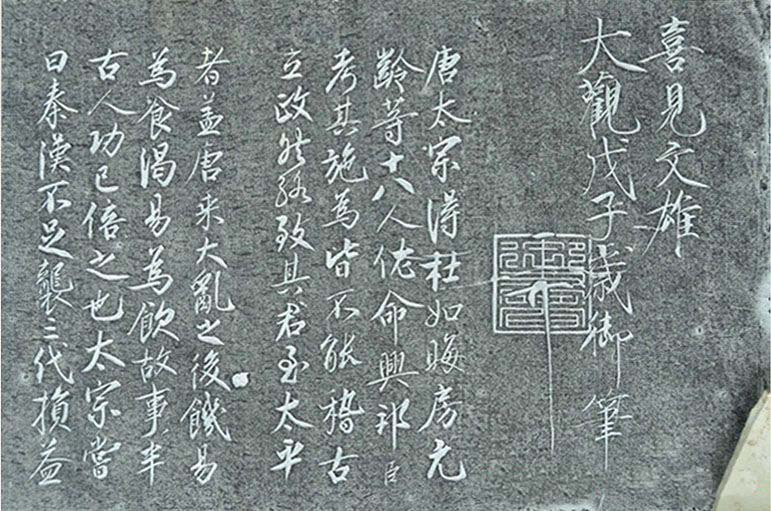 喜見文雄
大觀戊子歲御筆
唐太宗得杜如晦房元
齡等十八人佐命興邦臣
考其施為皆不能稽古
立政然致其君至太平
者蓋唐来大亂之後饑易
為食渴易為飲故事半
古人功已倍之也太宗嘗
曰秦漢不足襲三代損益